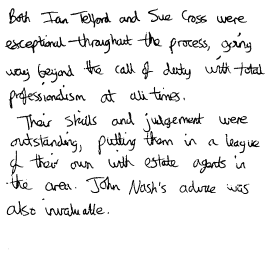 Both Ian Telford and Sue Cross were
exceptional throughout the process, going
way beyond the call of duty with total
professionalism at all times.
Their skills and judgement were
outstanding, putting them in a league
of their own with estate agents in
the area. John Nash's advice was
also invaluable.